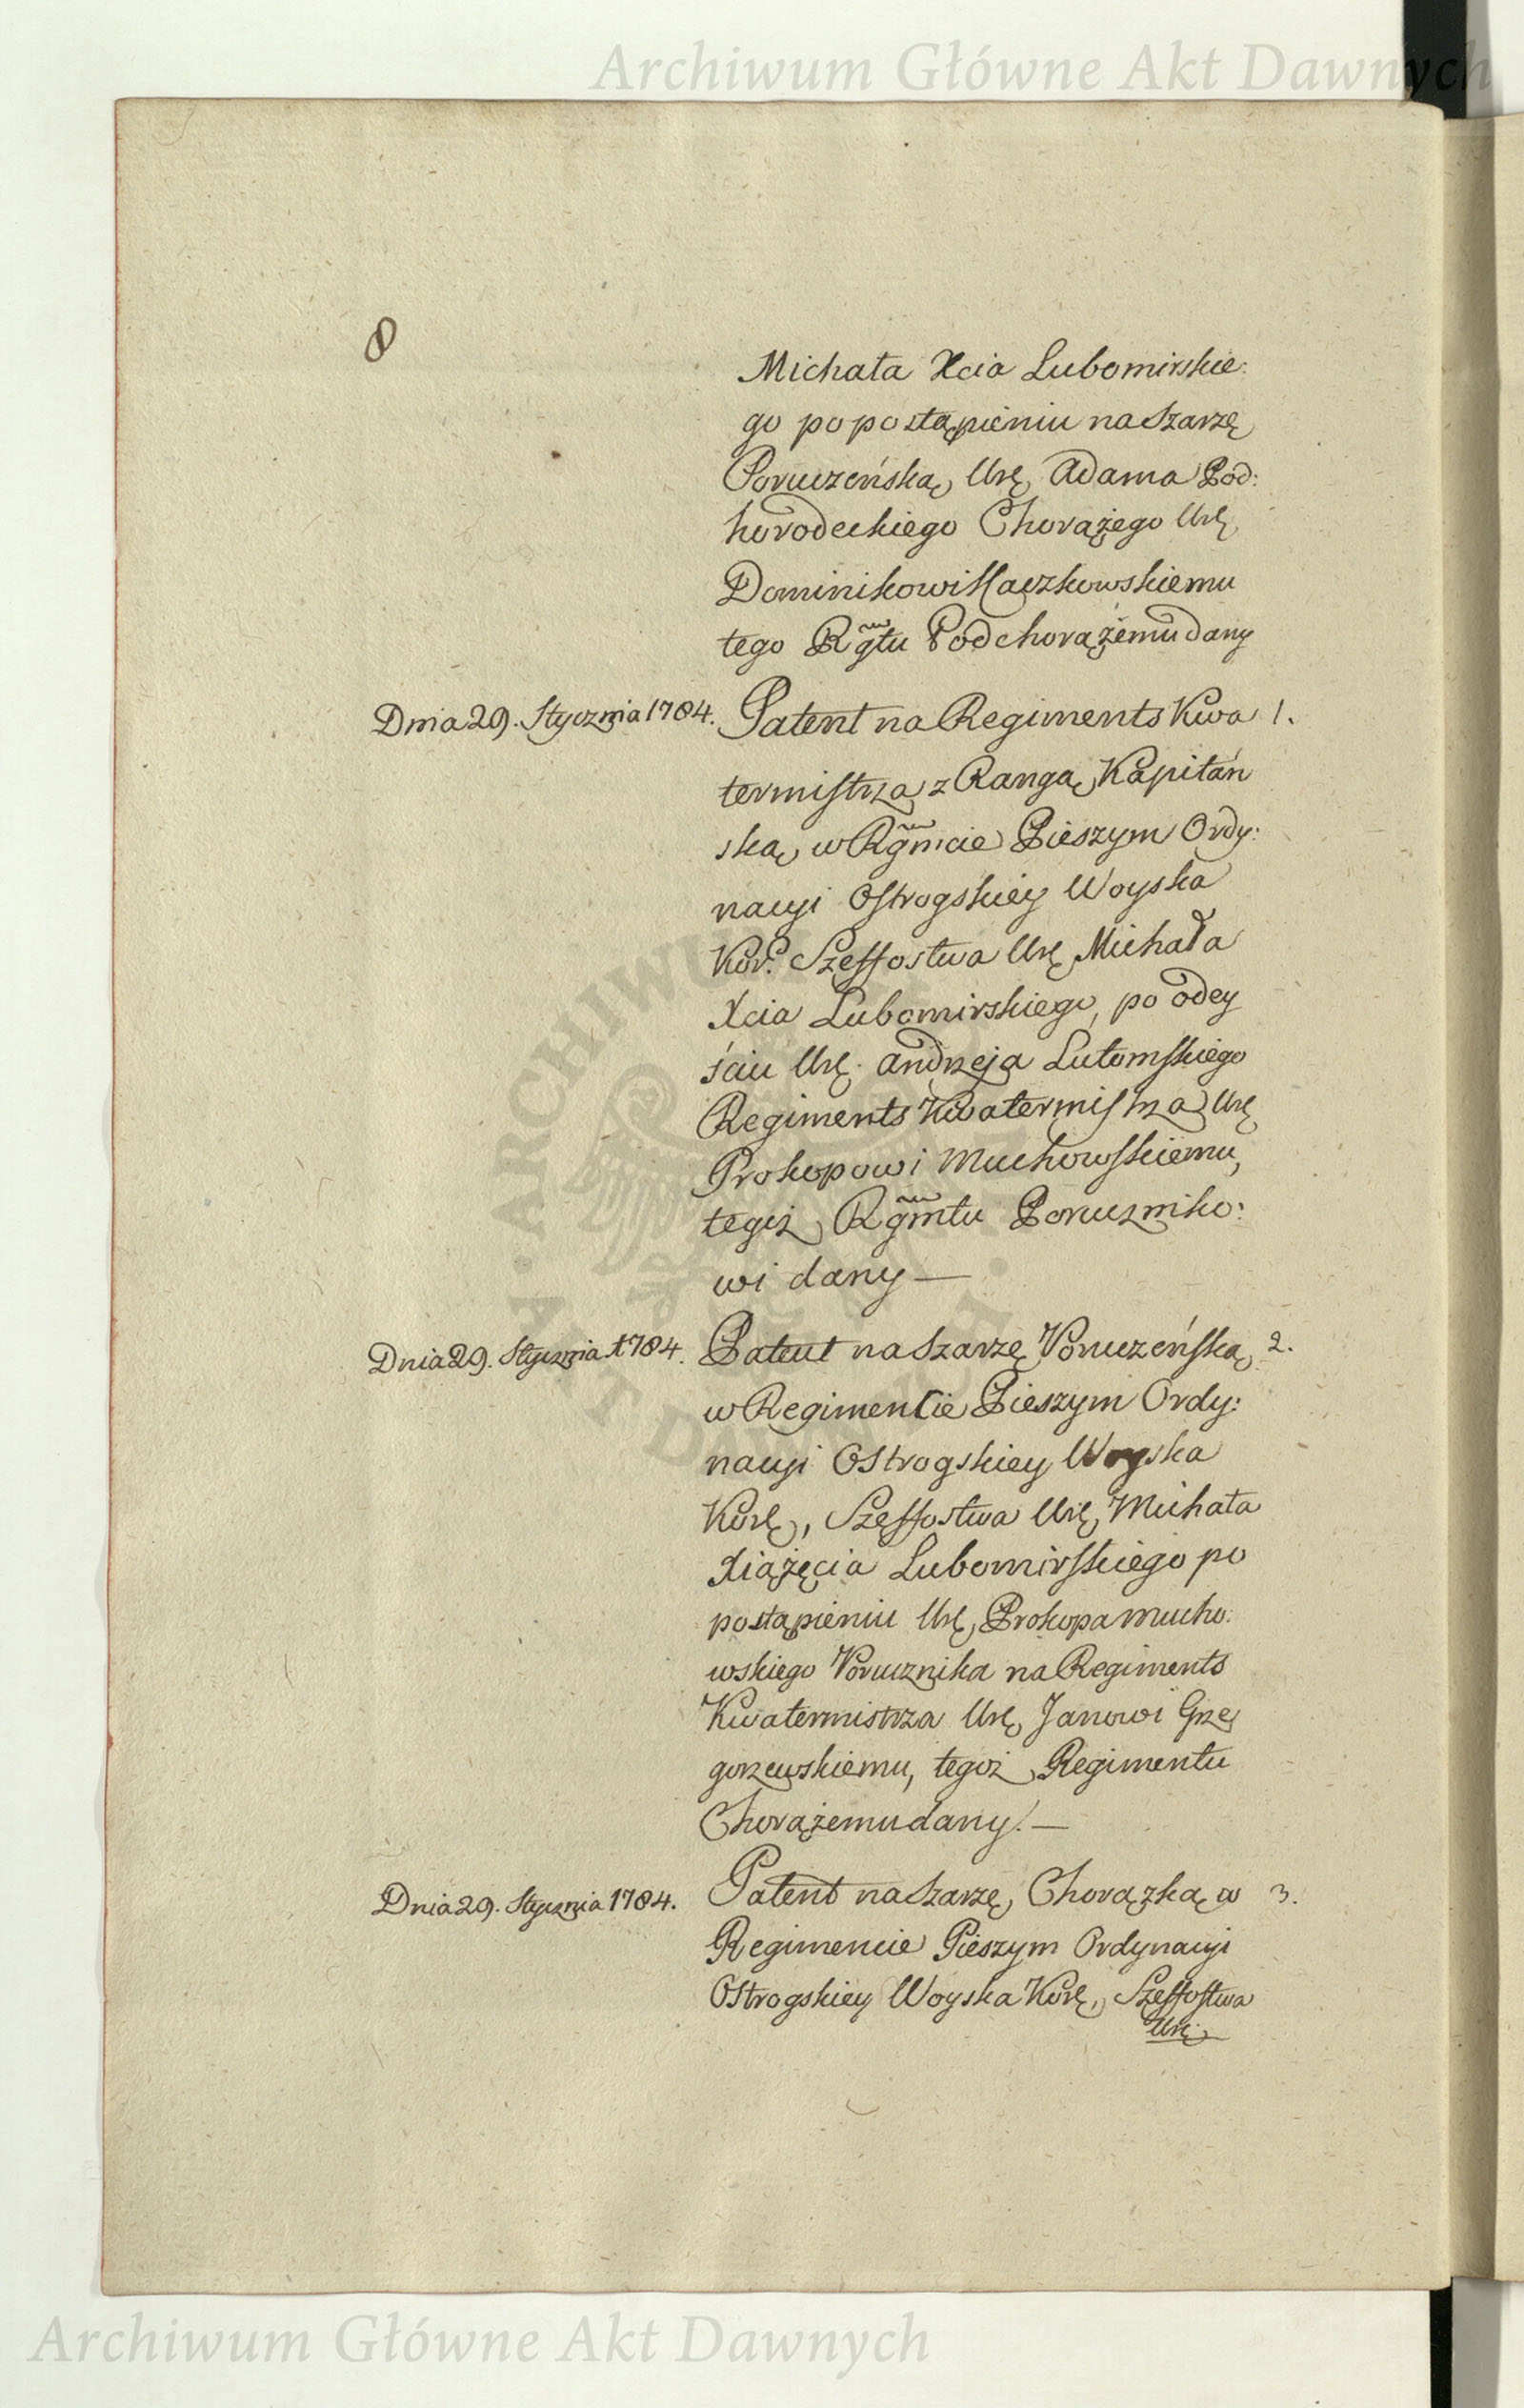 Archiwum Główne Akt Dawnych
8
Michała Xcia Lubomirskie:
go po postąpieniu na Szarzę
Poruczeńską, Urę Adama Pod:
horodeckiego Chorążego Urę
Dominikowi Haczkowskiemu
tego Rgtu Podchorążemu dany
Dnia 29. Stycznia 1784. Patent na Regiments Kwa 1.
termistrza z Rangą Kapitań
ską, w Rgmcie Pieszym Ordy:
nacyi Ostrogskiey Woyska
Kor. Szeffostwa Urę Michała
Xcia Lubomirskiego, po odey
ściu Urę. Andrzeja Lutomskiego
Regiments Kwatermistrza Urę
Prokopowi Muchowskiemu,
tegoż Rgmtu Poruczniko:
wi dany —
Dnia 29. Stycznia 1784. Patent na Szarżę Poruczeńską, 2.
w Regimencie Pieszym Ordy:
nacyi Ostrogskiey Woyska
Korę, Szeffostwa Urę Michała
Xiążęcia Lubomirskiego po
postąpieniu Urę Prokopa Mucho:
wskiego Porucznika na Regiments
Kwatermistrza Urę Janowi Grze
gorzewskiemu, tegoż Regimentu
Chorążemu dany. —
Dnia 29. Stycznia 1784. Patent na Szarżę, Chorązką w 3.
Regimencie Pieszym Ordynacyi
Ostrogskiey Woyska Korę, Szeffostwa
Urę.
ARCHIWUM
AKT DAWNYCH
Archiwum Główne Akt Dawnych